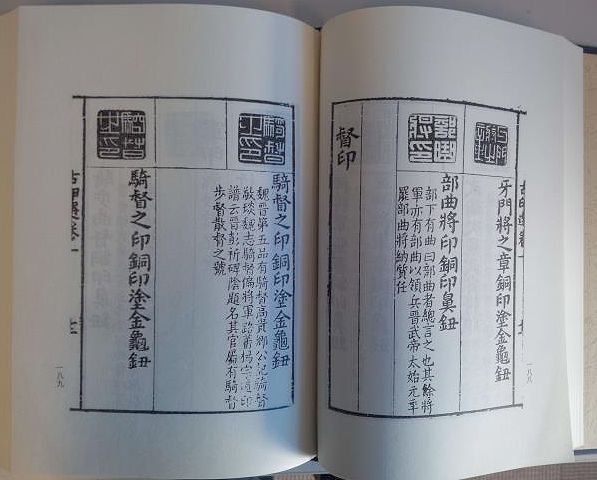 牙門將之章銅印塗金龜鈕
部曲將印
部曲將印銅印鼻鈕
部下有曲曰部曲者總言之也其餘將
軍亦有部曲以領兵晉武帝太始元年
罷部曲將納質任
督印
一八八
騎督之印
騎督之印銅印塗金龜鈕
魏晉第五品有騎督高貴鄉公記騎督
魏志騎督偏將軍路蕃楊宗道印
譜云晉彭祈碑陰題名其官屬有騎督
步督散督之號
騎督之印
騎督之印銅印塗金龜鈕
一八九